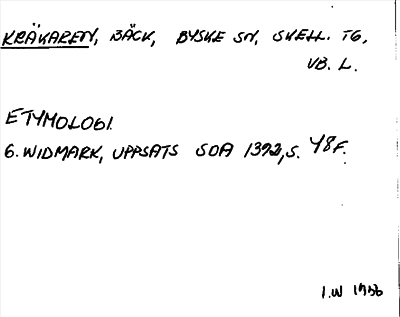 KRÄKAREN, BÄCK, BYSKE SN, SKELL. TG,
VB. L.
ETYMOLOGI.
G. WIDMARK, UPPSATS SOA 1392, S. 48F.
I.W